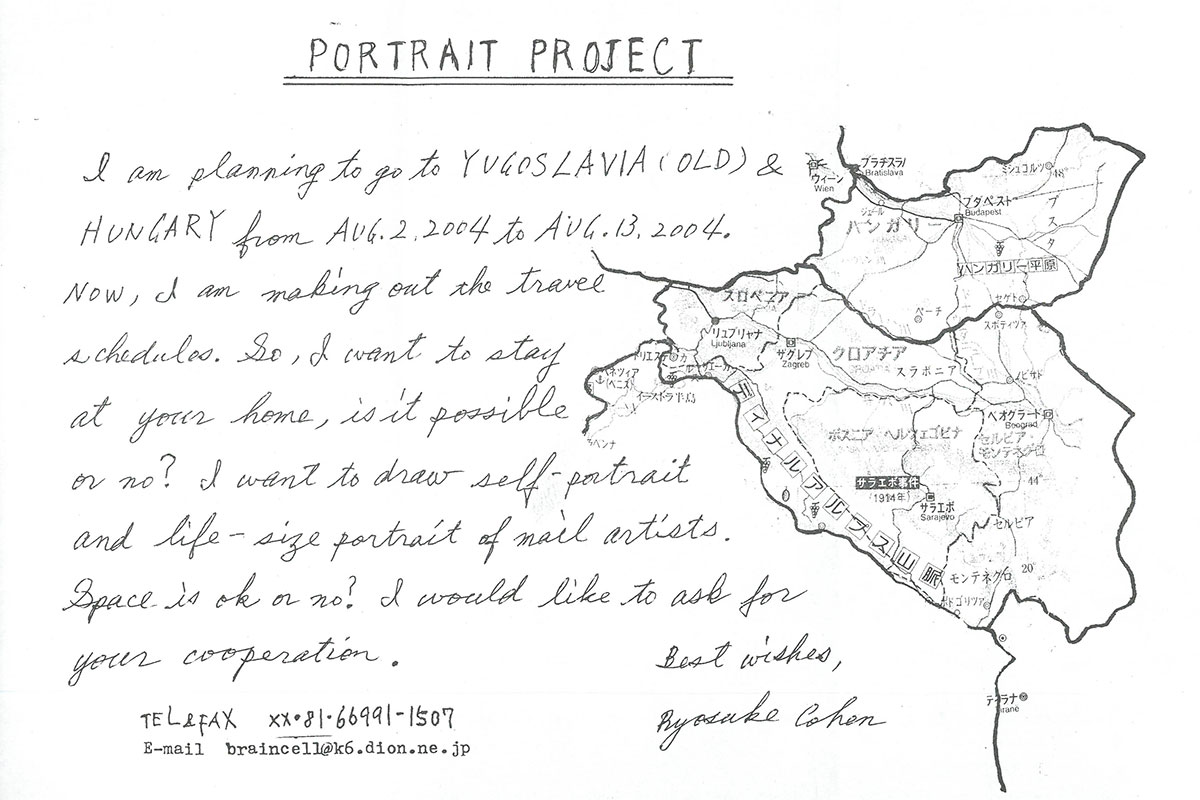 PORTRAIT PROJECT
I am planning to go to YUGOSLAVIA (OLD) &
HUNGARY from AUG. 2. 2004 to AUG. 13. 2004.
NOW, I am making out the travel
schedules. So, I want to stay
at your home, is it possible
or no? I want to draw self-portrait
and life-size portrait of mail artists.
Space is ok or no? I would like to ask for
your cooperation.
Best wishes,
Ryosuke Cohen
TEL & FAX XX・81・66991-1507
E-mail braincell@k6.dion.ne.jp
ウィーン
Wien
ブラチスラ
Bratislava
ミシュコルツ
48°
ジェール
ブダペスト
Budapest
プスタ
ハンガリー
ハンガリー平原
セゲト
ペーチ
スボティツァ
スロベニア
リュブリャナ
Ljubljana
トリエステ
ザグレブ
Zagreb
クロアチア
スラボニア
ノビサド
ベネツィア
(ベニス)
イストラ半島
ラベンナ
ディナルアルプス山脈
ベオグラード
Beograd
ボスニア・ヘルツェゴビナ
セルビア・
モンテネグロ
サラエボ事件
1914年
サラエボ
Sarajevo
44°
セルビア
モンテネグロ
20°
ポドゴリツァ
ティラナ
Tirane